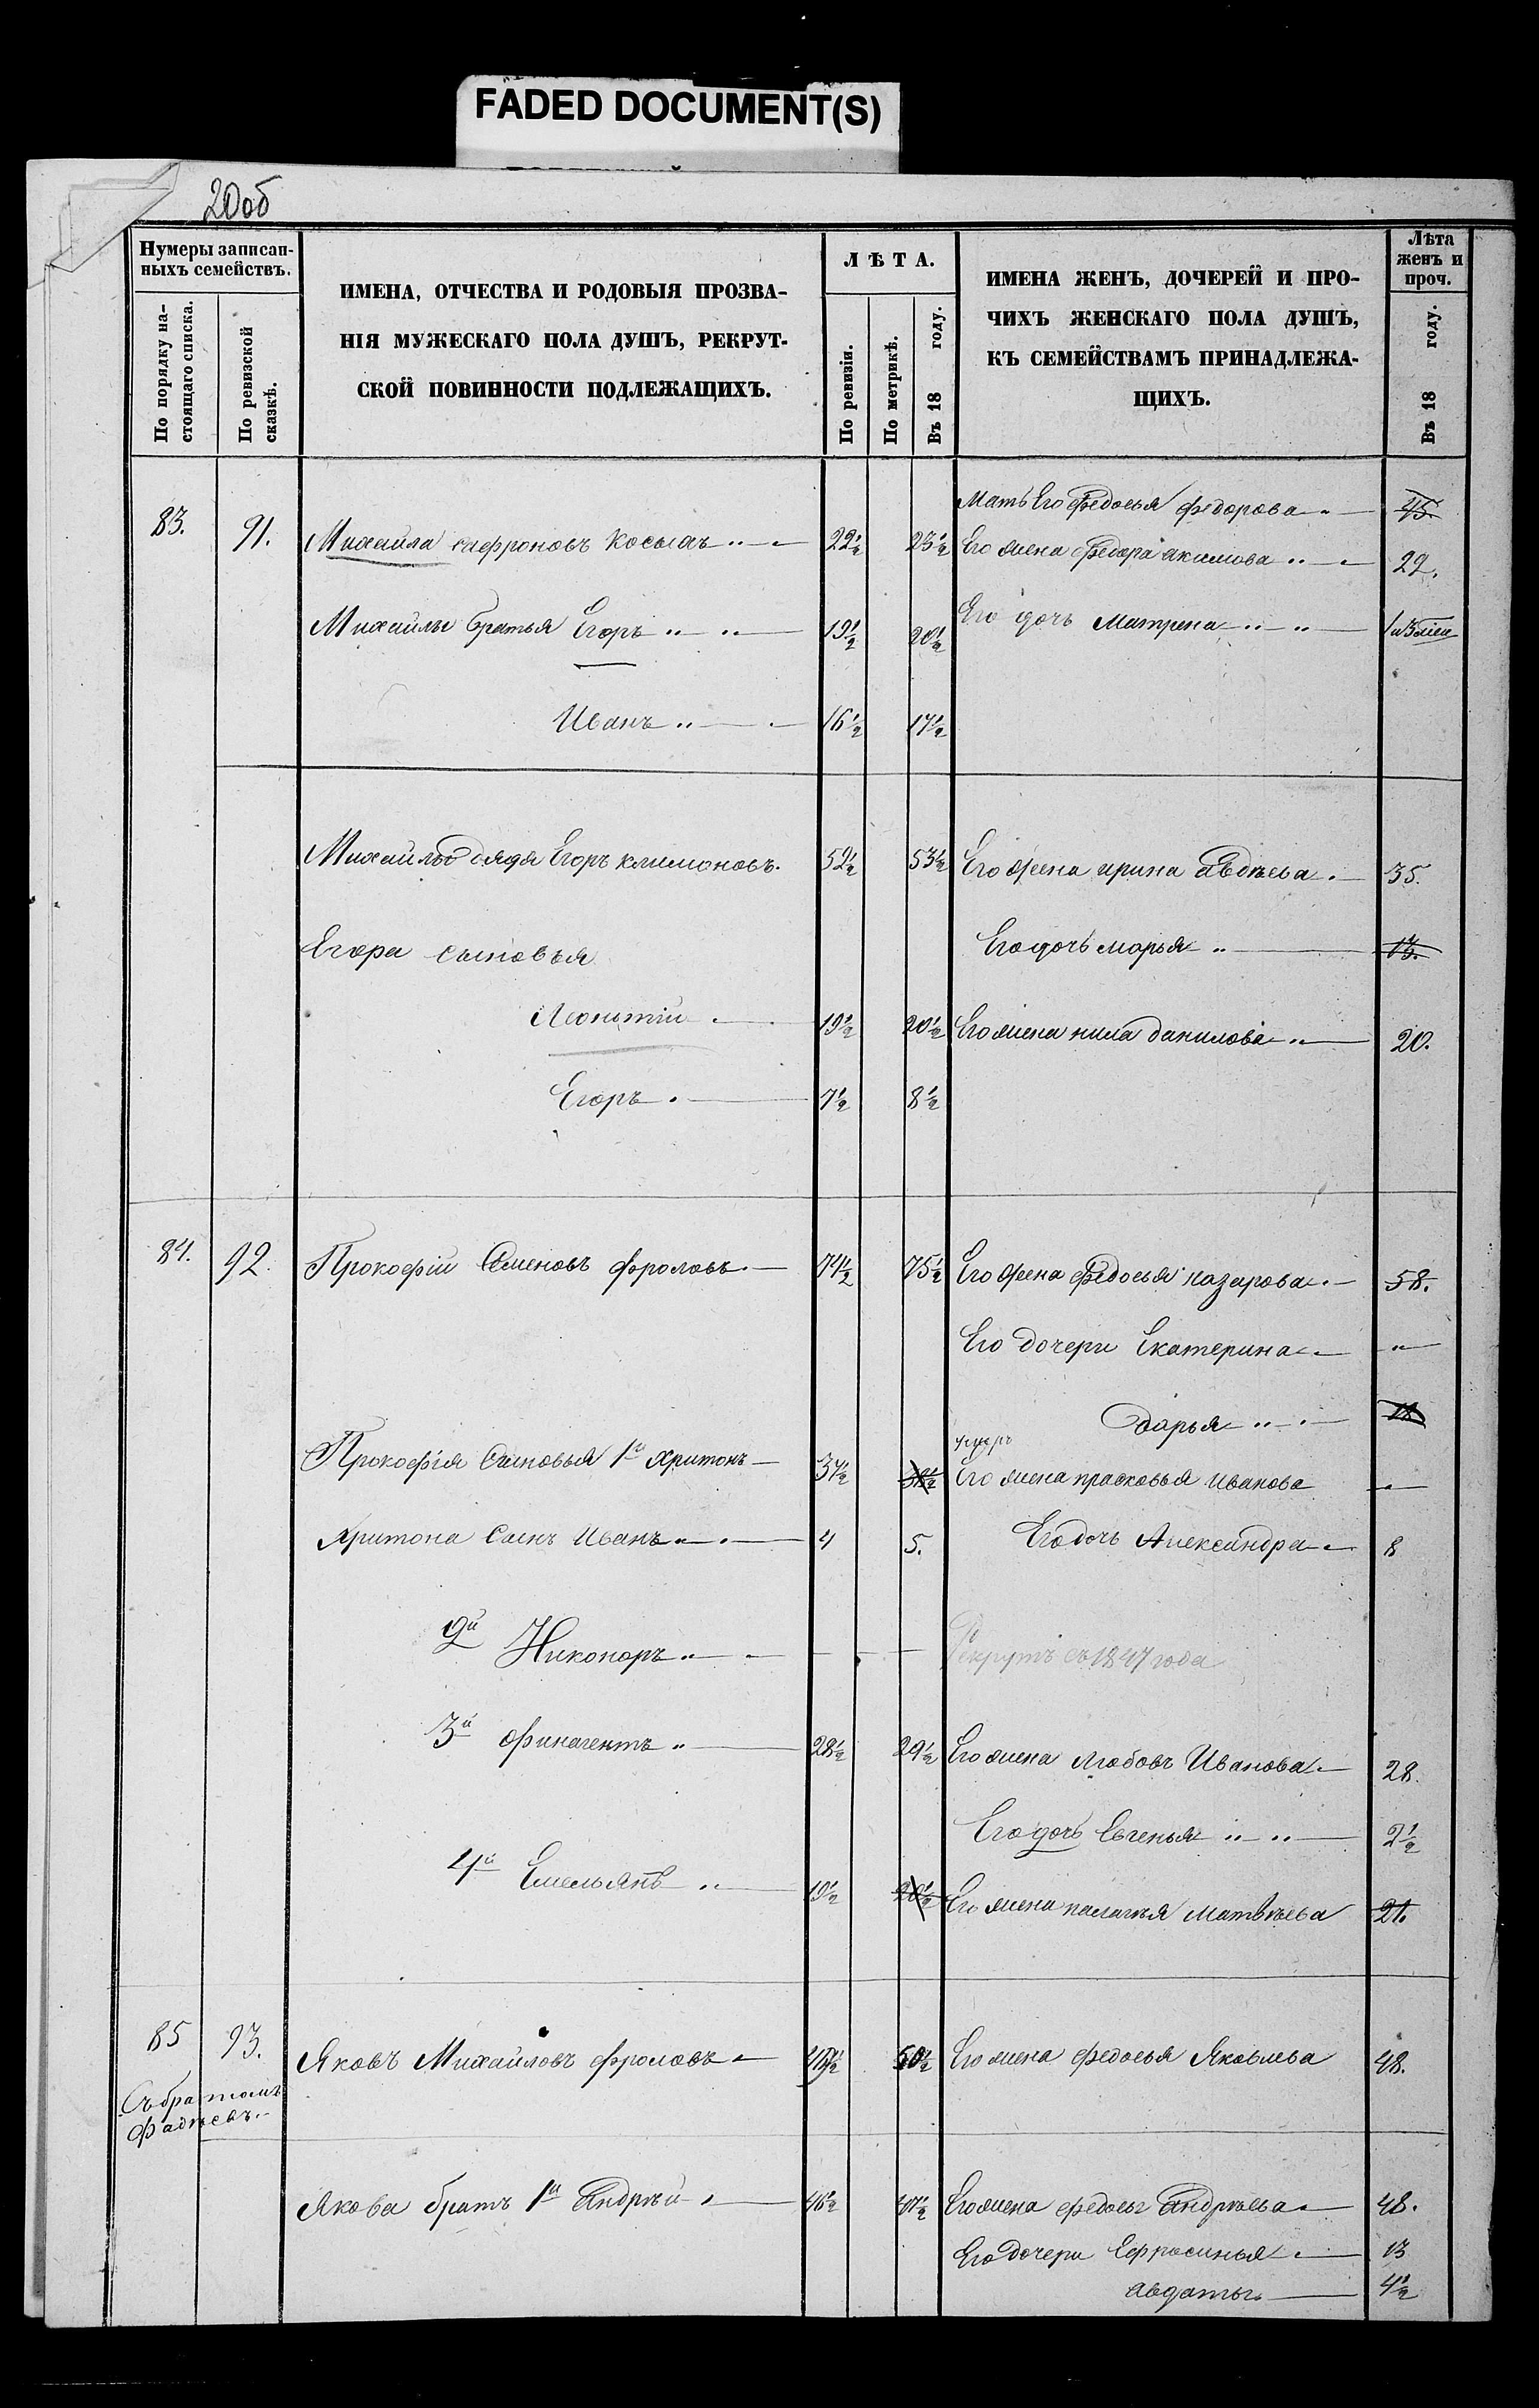 FADED DOCUMENT(S)
20об
Нумеры записан-
ныхъ семействъ.
По порядку на-
стоящаго списка.
По ревизской
сказкѣ.
ИМЕНА, ОТЧЕСТВА И РОДОВЫЯ ПРОЗВА-
НІЯ МУЖЕСКАГО ПОЛА ДУШЪ, РЕКРУТ-
СКОЙ ПОВИННОСТИ ПОДЛЕЖАЩИХЪ.
ЛѢТА.
По ревизіи.
По метрикѣ.
Въ 18 году.
ИМЕНА ЖЕНЪ, ДОЧЕРЕЙ И ПРО-
ЧИХЪ ЖЕНСКАГО ПОЛА ДУШЪ,
КЪ СЕМЕЙСТВАМЪ ПРИНАДЛЕЖА-
ЩИХЪ.
Лѣта
женъ и
проч.
Въ 18 году.
Мать Его Федосья федорова 45.
83. 91. Михайла сафроновъ 22½ 23½ Его жена акимова 22.
Михайлы братья Егоръ 19½ 20½ Его дочь Матрена
Иванъ 16½ 17½
Михайлы дядя Егоръ климоновъ. 52½ 53½ Его жена ирина Авдѣева 35.
Егора сыновья Его дочь марья 13.
Леонтий 19½ 20½ Его жена нила данилова 20.
Егоръ 7½ 8½
84. 92. Прокофій Семеновъ фроловъ 74½ 75½ Его жена федосья назарова 58.
Его дочери Екатерина
Дарья 18
умеръ
Прокофія Сыновья 1й Хритонъ 37½ 38½ Его жена прасковья иванова
Хритона Сынъ Иванъ 4 5. Его дочь Александра 8
2й Никоноръ Рекрутъ съ 1847 года
3й Финагентъ 28½ 29½ Его жена Любовь Иванова 28.
Его дочь Евгенья 2½
4й Емельянъ 19½ 20½ Его жена палагѣя Матвѣева 21.
85 93. Яковъ Михайловъ фроловъ 49½ 50½ Его жена федосья Яковлева 48.
Съ братомъ
Фадѣевъ.
Якова братъ 1й Андрѣй 46½ 47½ Его жена Андрѣева 48.
Его дочери Ефросинья 13
авдатья 4½